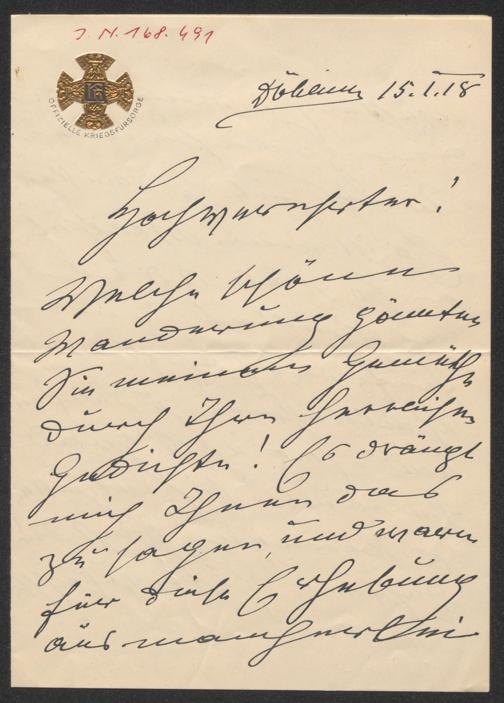 J. N. 168.491
OFFIZIELLE KRIEGSFÜRSORGE
Döbling 15.I.18
Hochverehrter!
Welche schöne
Wanderung gönnten
Sie meinem Gemüthe
durch Ihre herrlichen
Gedichte! Es drängt
mich Ihnen das
zu sagen, und warm
für diese Erhebung
aus mancherlei